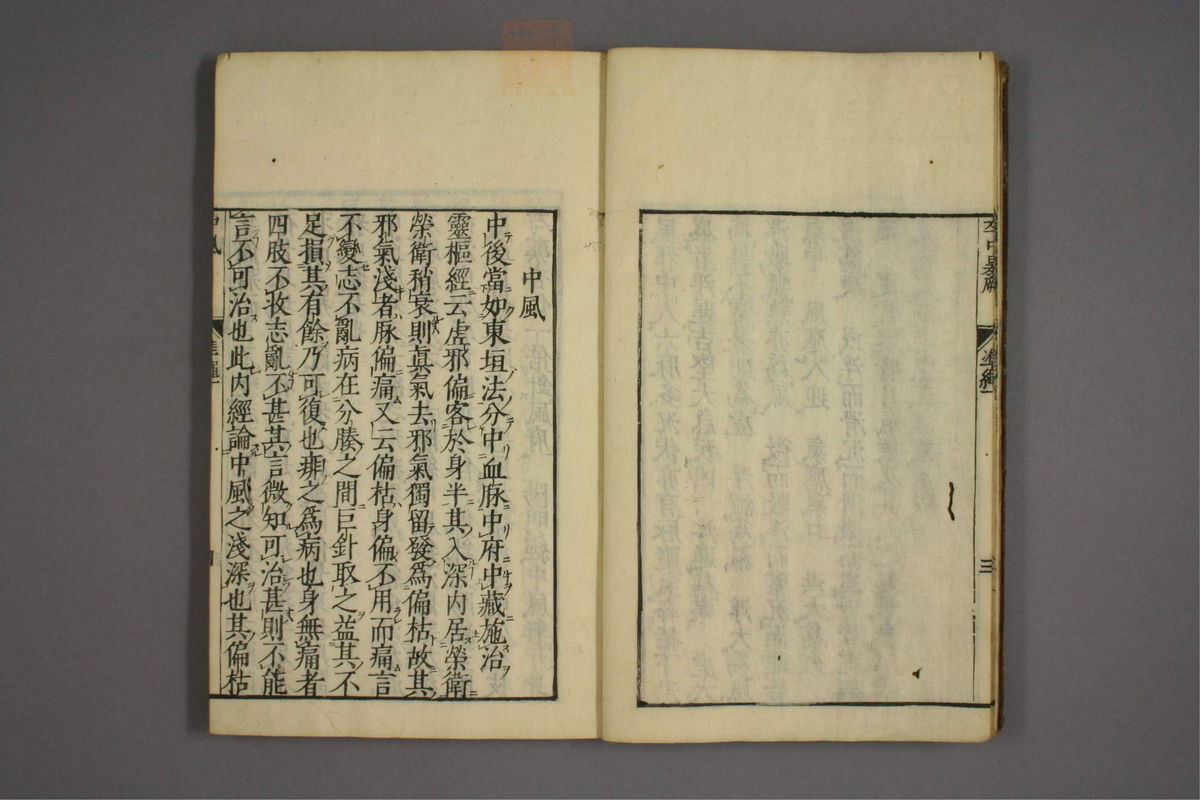 準繩一
三
中風
中後當如東垣法分中血脉中府中藏施治
靈樞經云虛邪偏客於身半其入深內居榮衛
榮衛稍衰則眞氣去邪氣獨留發爲偏枯故其
邪氣淺者脉偏痛又云偏枯身偏不用而痛言
不變志不亂病在分腠之間巨針取之益其不
足損其有餘乃可復也痱之爲病也身無痛者
四肢不收志亂不甚其言微知可治甚則不能
言不可治也此內經論中風之淺深也其偏枯
中風